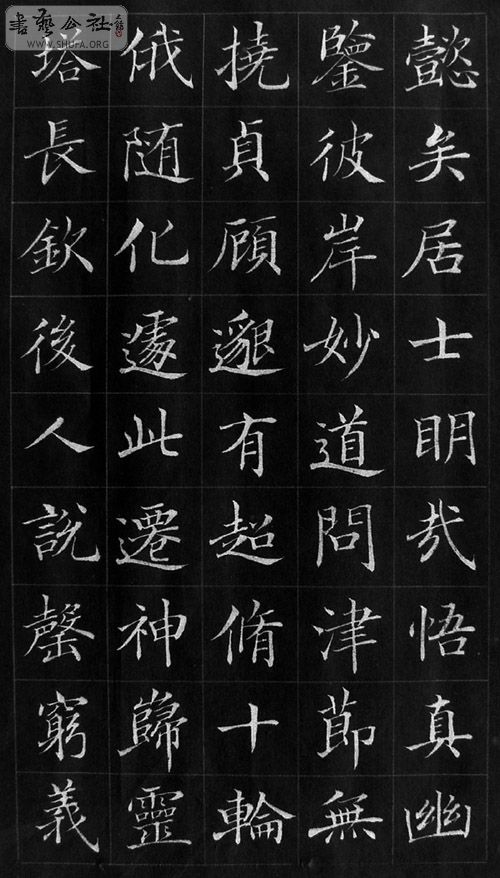 懿矣居士明哉悟真幽
鑒彼岸妙道問津節無
撓貞顧邈有超脩十輪
俄随化遽此遷神歸靈
塔長欽後人説罄窮義
書藝公社
www.SHUFA.ORG